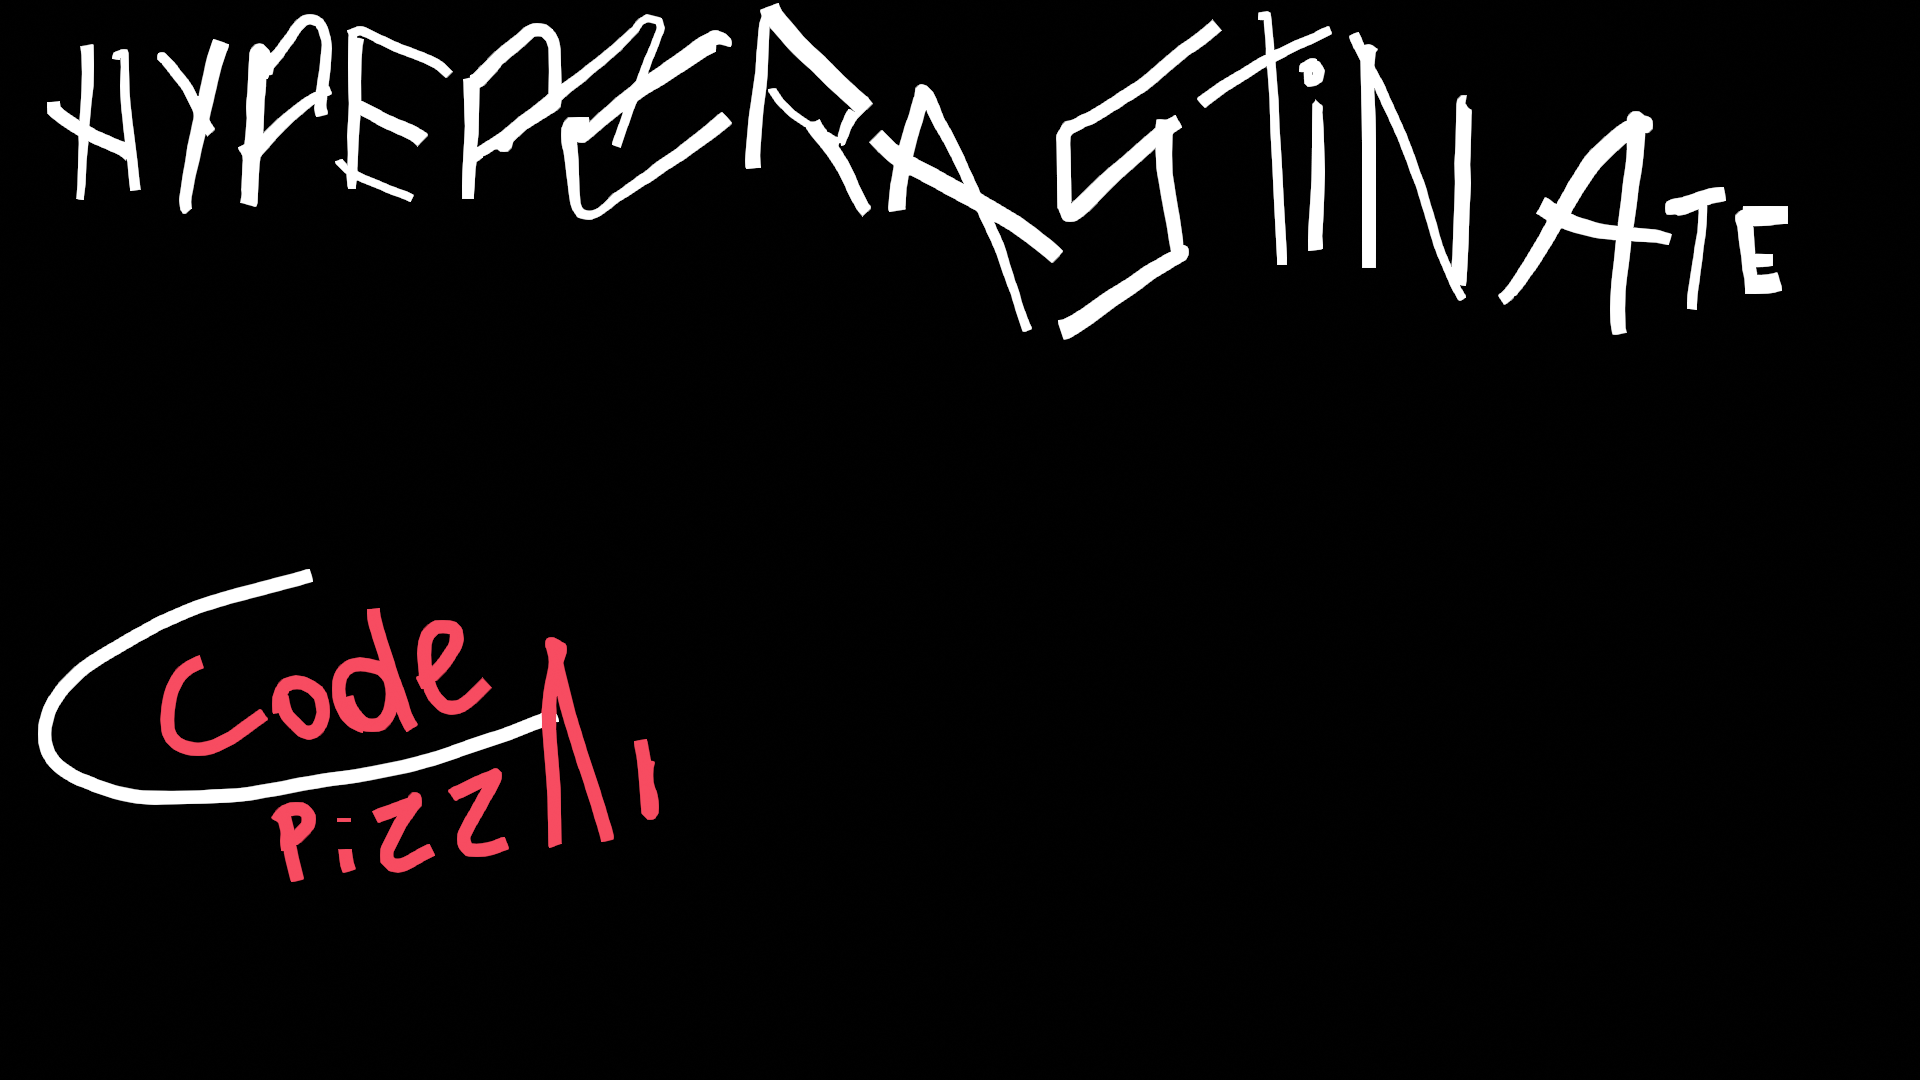 HYPEPERASTiNATE
Code
PizzA